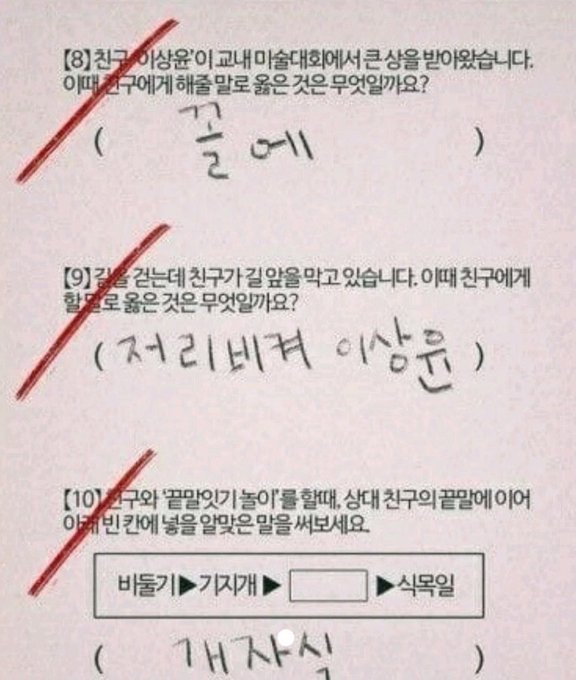 【8】친구 '이상윤'이 교내 미술대회에서 큰 상을 받아왔습니다.
이때 친구에게 해줄 말로 옳은 것은 무엇일까요?
( 꼴에 )
【9】길을 걷는데 친구가 길 앞을 막고 있습니다. 이때 친구에게
할 말로 옳은 것은 무엇일까요?
( 저리비켜 이상윤 )
【10】친구와 '끝말잇기 놀이'를 할때, 상대 친구의 끝말에 이어
아래 빈 칸에 넣을 알맞은 말을 써보세요.
바둑기▶기지개▶ ▶식목일
( 개자식 )